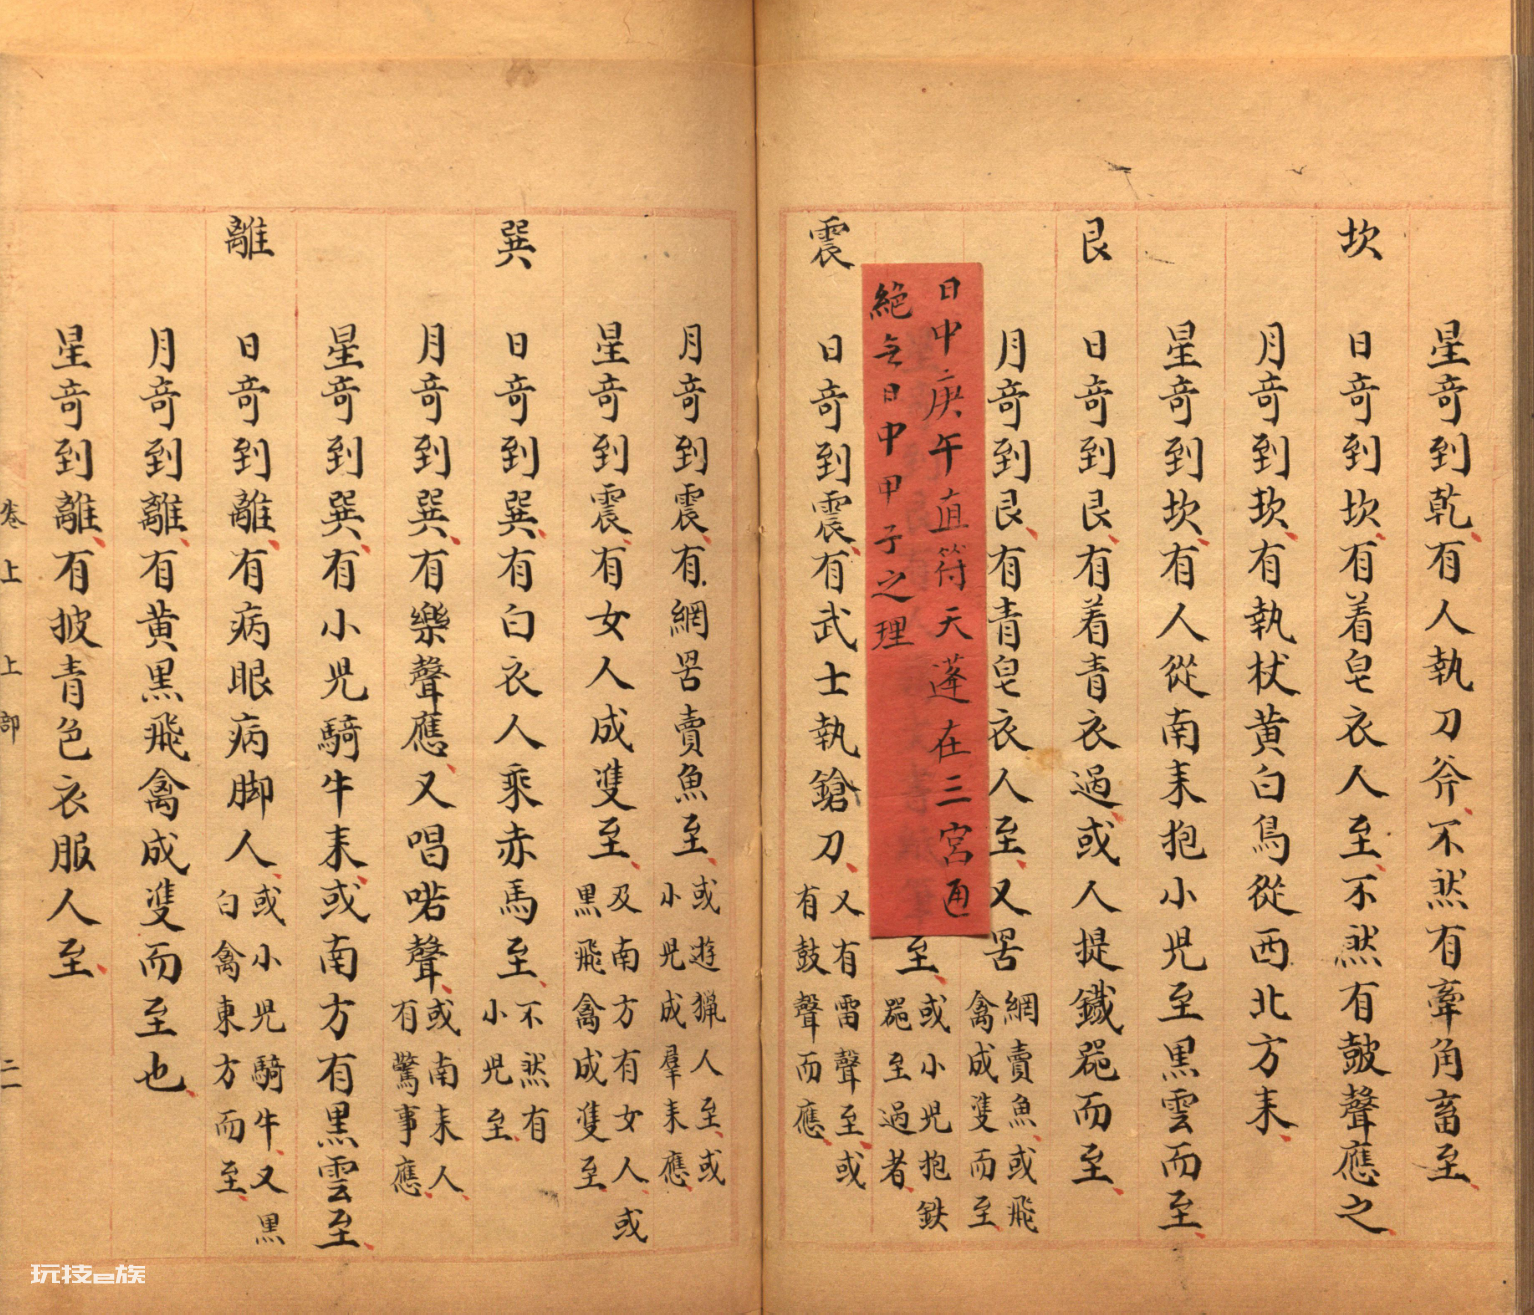 星奇到乾有人執刀斧不然有牽角畜至
坎
日奇到坎有着皂衣人至不然有皷聲應之
月奇到坎有執杖黄白鳥從西北方耒
星奇到坎有人從南耒抱小児至黒雲而至
艮
日奇到艮有着青衣過或人提鐡噐而至
月奇到艮有青皂衣人至又罟
網賣魚或飛
禽成隻而至
日中庚午直符天蓬在三宮通
絶之日中甲子之理
至
或小児抱鉄
噐至過者
震
日奇到震有武士執鎗刀
又有雷聲至或
有鼓聲而應
月奇到震有網罟賣魚至
或遊猟人至或
小児成羣耒應
星奇到震有女人成隻至
及南方有女人或
黒飛禽成隻至
巽
日奇到巽有白衣人乘赤馬至
不然有
小児至
月奇到巽有樂聲應又唱喏聲
或南耒人
有驚事應
星奇到巽有小児騎牛耒或南方有黒雲至
離
日奇到離有病眼病脚人
或小児騎牛又黒
白禽東方而至
月奇到離有黄黒飛禽成隻而至也
星奇到離有披青色衣服人至
卷上 上部 二
玩技e族